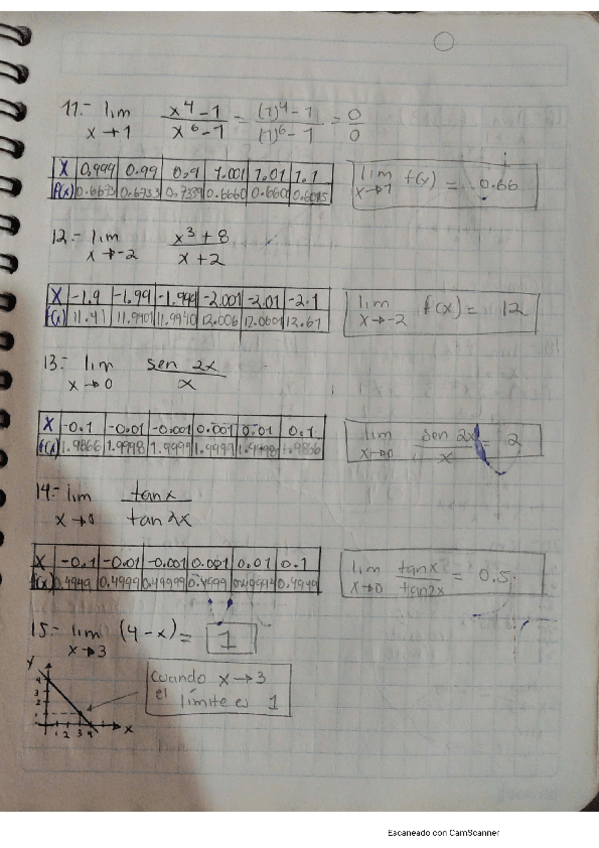 11.- lim x⁴-1 = (1)⁴-1 = 0
x→1 x⁶-1 (1)⁶-1 0
x 0.999 0.99 0.9 1.001 1.01 1.1
f(x) 0.6673 0.6733 0.7339 0.6660 0.6600
lim f(x) = 0.66
x→1
12.- lim x³+8
x→-2 x+2
x -1.9 -1.99 -1.999 -2.001 -2.01 -2.1
f(x) 11.41 11.9401 11.9940 12.006 12.0601 12.61
lim f(x) = 12
x→-2
13.- lim sen 2x
x→0 x
x -0.1 -0.01 -0.001 0.001 0.01 0.1
f(x) 1.9866 1.9998 1.9999 1.9999 1.9998 1.9866
lim sen 2x = 2
x→0 x
14.- lim tanx
x→0 tan2x
x -0.1 -0.01 -0.001 0.001 0.01 0.1
f(x) 0.4949 0.4999 0.49999 0.4999 0.4949
lim tanx = 0.5
x→0 tan2x
15.- lim (4-x) = 1
x→3
Cuando x→3
el límite es 1
y
4
3
2
1
1 2 3 4 x
Escaneado con CamScanner